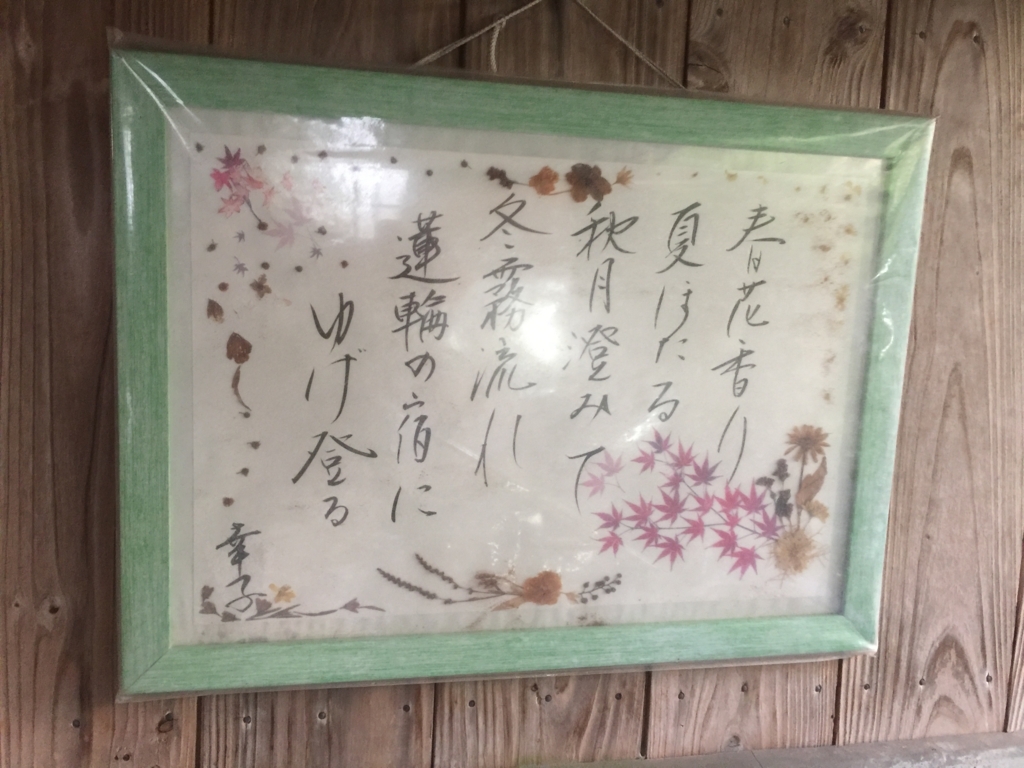 春花香り
夏ほたる
秋月澄みて
冬霧流れ
蓮輪の宿に
ゆげ登る
幸子